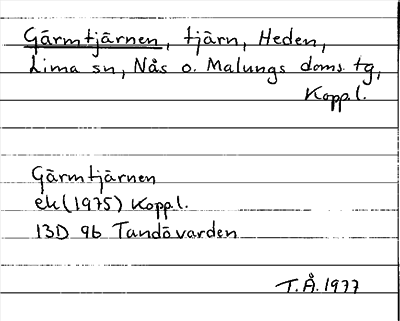 Gärmtjärnen, tjärn, Heden,
Lima sn, Nås o. Malungs doms. tg,
Koppl.
Gärmtjärnen
ek (1975) Koppl.
13D 9b Tandövarden
T.Å. 1977